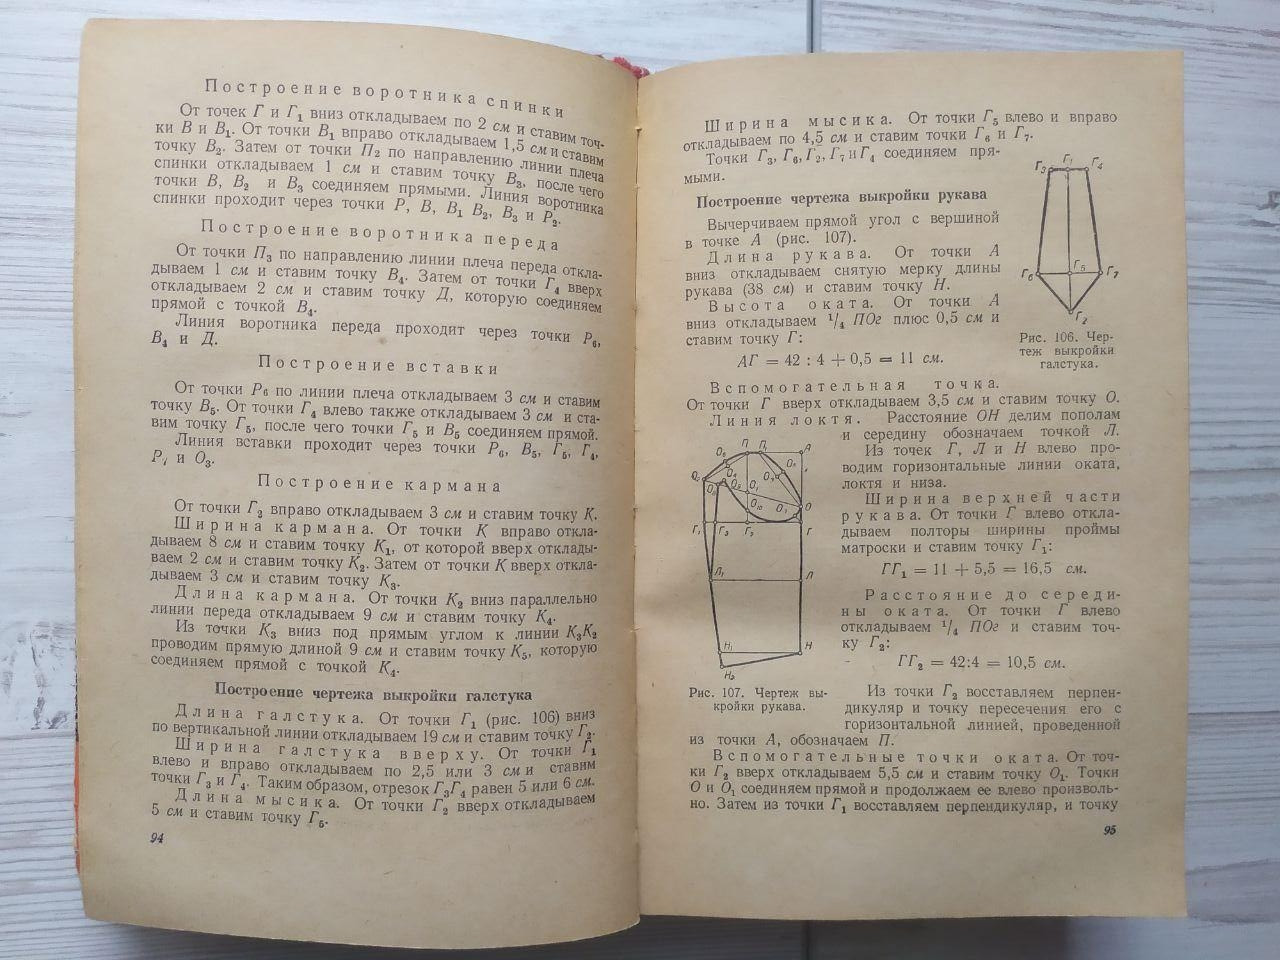 Построение воротника спинки
От точек Г и Г₁ вниз откладываем по 2 см и ставим точ-
ки В и В₁. От точки В₁ вправо откладываем 1,5 см и ставим
точку В₂. Затем от точки П₂ по направлению линии плеча
спинки откладываем 1 см и ставим точку В₃, после чего
точки В, В₂ и В₃ соединяем прямыми. Линия воротника
спинки проходит через точки Р, В, В₁ В₂, В₃ и Р₂.
Построение воротника переда
От точки П₃ по направлению линии плеча переда откла-
дываем 1 см и ставим точку В₄. Затем от точки Г₄ вверх
откладываем 2 см и ставим точку Д, которую соединяем
прямой с точкой В₄.
Линия воротника переда проходит через точки Р₆,
В₄ и Д.
Построение вставки
От точки Р₆ по линии плеча откладываем 3 см и ставим
точку В₅. От точки Г₄ влево также откладываем 3 см и ста-
вим точку Г₅, после чего точки Г₅ и В₅ соединяем прямой.
Линия вставки проходит через точки Р₆, В₅, Г₅, Г₄,
и О₃.
Построение кармана
От точки Г₃ вправо откладываем 3 см и ставим точку К.
Ширина кармана. От точки К вправо откла-
дываем 8 см и ставим точку К₁, от которой вверх отклады-
ваем 2 см и ставим точку К₂. Затем от точки К вверх откла-
дываем 3 см и ставим точку К₃.
Длина кармана. От точки К₂ вниз параллельно
линии переда откладываем 9 см и ставим точку К₄.
Из точки К₃ вниз под прямым углом к линии К₃К₂
проводим прямую длиной 9 см и ставим точку К₅, которую
соединяем прямой с точкой К₄.
Построение чертежа выкройки галстука
Длина галстука. От точки Г₁ (рис. 106) вниз
по вертикальной линии откладываем 19 см и ставим точку Г₂.
Ширина галстука вверху. От точки Г₁
влево и вправо откладываем по 2,5 или 3 см и ставим
точки Г₃ и Г₄. Таким образом, отрезок Г₃Г₄ равен 5 или 6 см.
Длина мысика. От точки Г₂ вверх откладываем
5 см и ставим точку Г₅.
94
Ширина мысика. От точки Г₅ влево и вправо
откладываем по 4,5 см и ставим точки Г₆ и Г₇.
Точки Г₃, Г₆, Г₂, Г₇ и Г₄ соединяем пря-
мыми.
Построение чертежа выкройки рукава
Вычерчиваем прямой угол с вершиной
в точке А (рис. 107).
Длина рукава. От точки А
вниз откладываем снятую мерку длины
рукава (38 см) и ставим точку Н.
Высота оката. От точки А
вниз откладываем ¹/₄ ПОг плюс 0,5 см и
ставим точку Г:
АГ = 42 : 4 + 0,5 = 11 см.
Г₃ Г₁ Г₄
Г₆ Г₅ Г₇
Г₂
Рис. 106. Чер-
теж выкройки
галстука.
Вспомогательная точка.
От точки Г вверх откладываем 3,5 см и ставим точку О.
Линия локтя. Расстояние ОН делим пополам
и середину обозначаем точкой Л.
Из точек Г, Л и Н влево про-
водим горизонтальные линии оката,
локтя и низа.
Ширина верхней части
рукава. От точки Г влево откла-
дываем полторы ширины проймы
матроски и ставим точку Г₁:
ГГ₁ = 11 + 5,5 = 16,5 см.
Расстояние до середи-
ны оката. От точки Г влево
откладываем ¹/₄ ПОг и ставим точ-
ку Г₂:
ГГ₂ = 42:4 = 10,5 см.
П А
О₁ О
Г₁ Г₃ Г₂ Г
Л₁ Л
Н₁ Н
Н₂
Рис. 107. Чертеж вы-
кройки рукава.
Из точки Г₂ восставляем перпен-
дикуляр и точку пересечения его с
горизонтальной линией, проведенной
из точки А, обозначаем П.
Вспомогательные точки оката. От точ-
ки Г₂ вверх откладываем 5,5 см и ставим точку О₁. Точки
О и О₁ соединяем прямой и продолжаем ее влево произволь-
но. Затем из точки Г₁ восставляем перпендикуляр, и точку
95